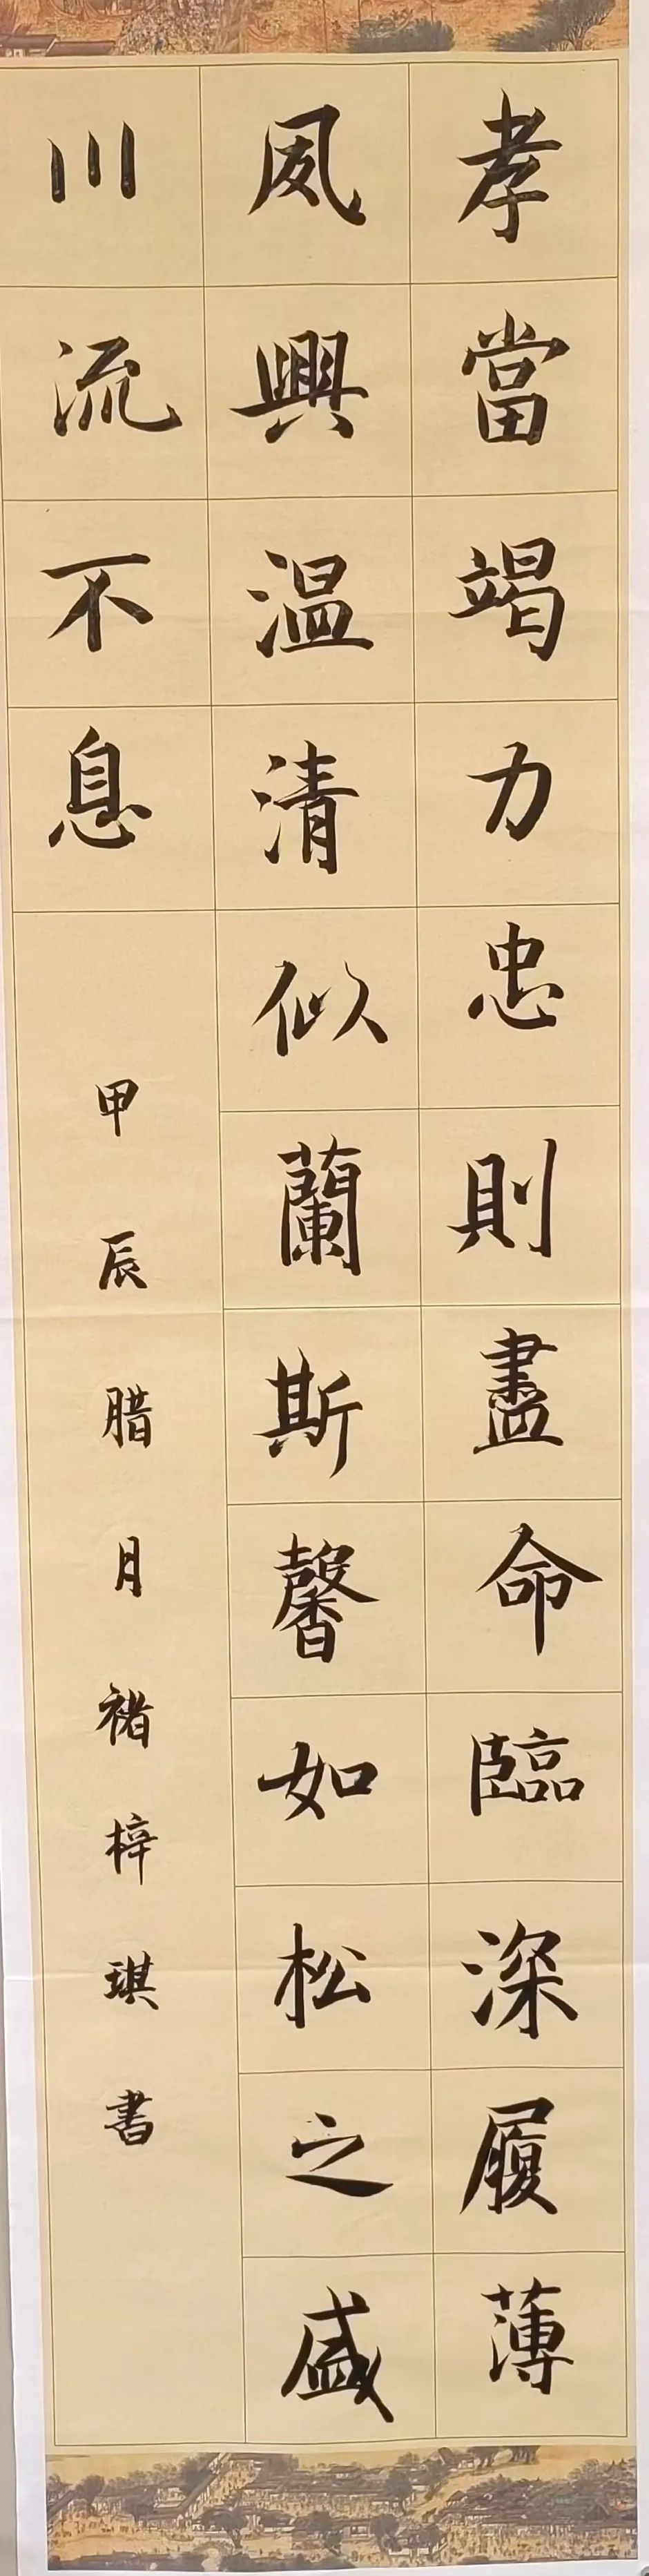 孝當竭力忠則盡命臨深履薄
夙興温清似蘭斯馨如松之盛
川流不息
甲辰腊月褚梓琪書